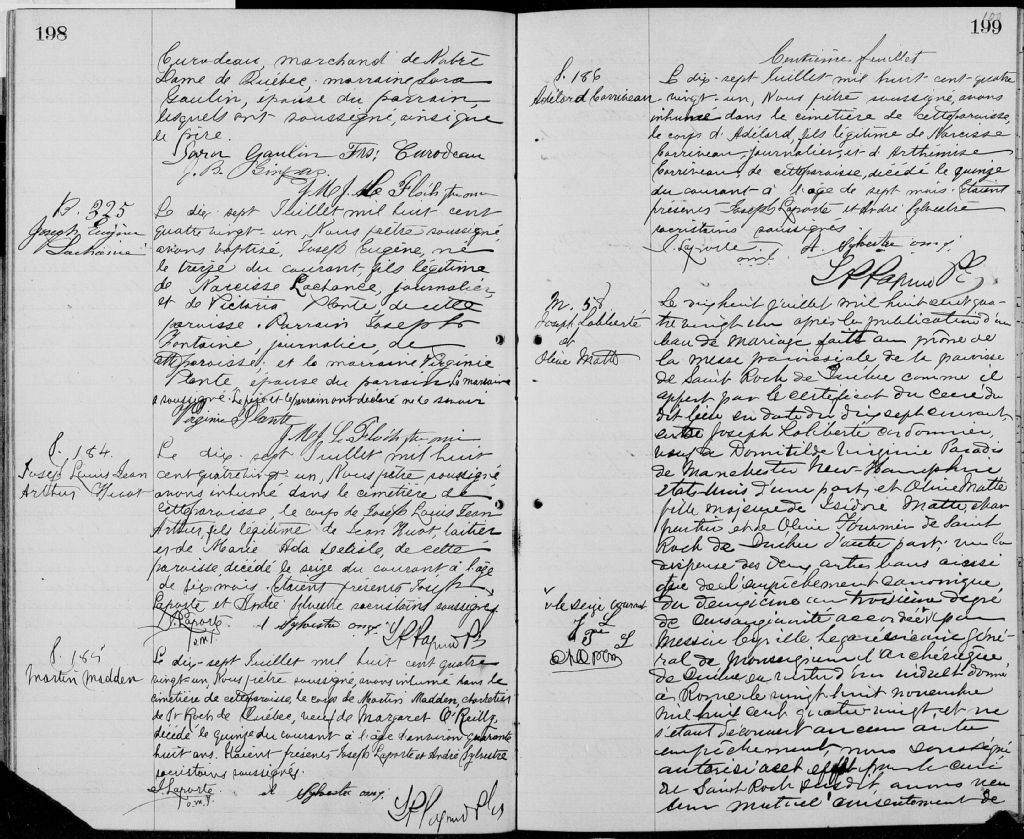 198
Curodeau, marchand de Notre
Dame de Québec, marraine Sara
Gaulin, épouse du parrain,
lesquels ont soussigné, ainsi que
le père.
Sara Gaulin Frs: Curodeau
J. B.
B. 225
Joseph Eugène
Lachance
Le dix-sept Juillet mil huit cent
quatre vingt-un, Nous prêtre soussigné
avons baptisé, Joseph Eugène, né
le treize du courant, fils légitime
de Narcisse Lachance, journalier,
et de Victoria Planté, de cette
paroisse. Parrain Joseph
Fontaine, journalier de
cette paroisse, et la marraine Virginie
Planté épouse du parrain La marraine
a soussigné. Le père et le parrain ont déclaré ne le savoir
Virginie Plante
S. 184.
Joseph Louis Jean
Arthur Huot
Le dix-sept Juillet mil huit
cent quatre vingt-un, Nous prêtre soussigné
avons inhumé dans le cimetière de
cette paroisse, le corps de Joseph Louis Jean
Arthur, fils légitime de Jean Huot, laitier
et de Marie Ada Delisle, de cette
paroisse, décédé le seize du courant à l'âge
de six mois. Etaient présents Joseph
Laporte et André Sylvestre sacristains soussignés
J. Laporte A Sylvestre
S. 185
Martin Madden
Le dix-sept Juillet mil huit cent quatre
vingt-un, Nous prêtre soussigné, avons inhumé dans le
cimetière de cette paroisse, le corps de Martin Madden, charretier
de St Roch de Québec, veuf de Margaret O'Reilly,
décédé le quinze du courant à l'âge d'environ quarante
huit ans. Etaient présents Joseph Laporte et André Sylvestre
sacristains soussignés.
J. Laporte A Sylvestre
199
Centième feuillet
S. 186
Adélard Corriveau
Le dix-sept Juillet mil huit cent quatre
vingt-un, Nous prêtre soussigné, avons
inhumé dans le cimetière de cette paroisse,
le corps d'Adélard, fils légitime de Narcisse
Corriveau, journalier, et d'Arthémise
Corriveau, de cette paroisse, décédé le quinze
du courant à l'âge de sept mois. Etaient
présents Joseph Laporte et André Sylvestre
sacristains soussignés
J. Laporte A. Sylvestre
M. 58
Joseph Laliberté
et
Olive Matte
Le vingt huit juillet mil huit cent qua-
tre vingt un après la publication d'un
ban de mariage faite au prône de
la messe paroissiale de la paroisse
de Saint Roch de Québec comme il
appert par le certificat du curé du
dit lieu en date du dix sept courant
entre Joseph Laliberté cordonnier,
veuf de Domitilde Virginie Paradis
de Manchester New-Hampshire
Etats-Unis d'une part, et Olive Matte
fille majeure de Isidore Matte, char-
pentier et de Olive Fournier de Saint
Roch de Québec d'autre part; vu la
dispense des deux autres bans ainsi
que de l'empêchement canonique
du deuxième au troisième degré
de consanguinité accordée par
Messire Legaré vicaire géné-
ral de Monseigneur l'Archevêque
de Québec en vertu d'un indult donné
à Rome le vingt huit novembre
mil huit cent quatre-vingt, et ne
s'étant découvert aucun autre
empêchement, nous soussigné
autorisé à cet effet par le curé
de Saint Roch susdit, avons reçu
leur mutuel consentement de
v le seize courant
J L